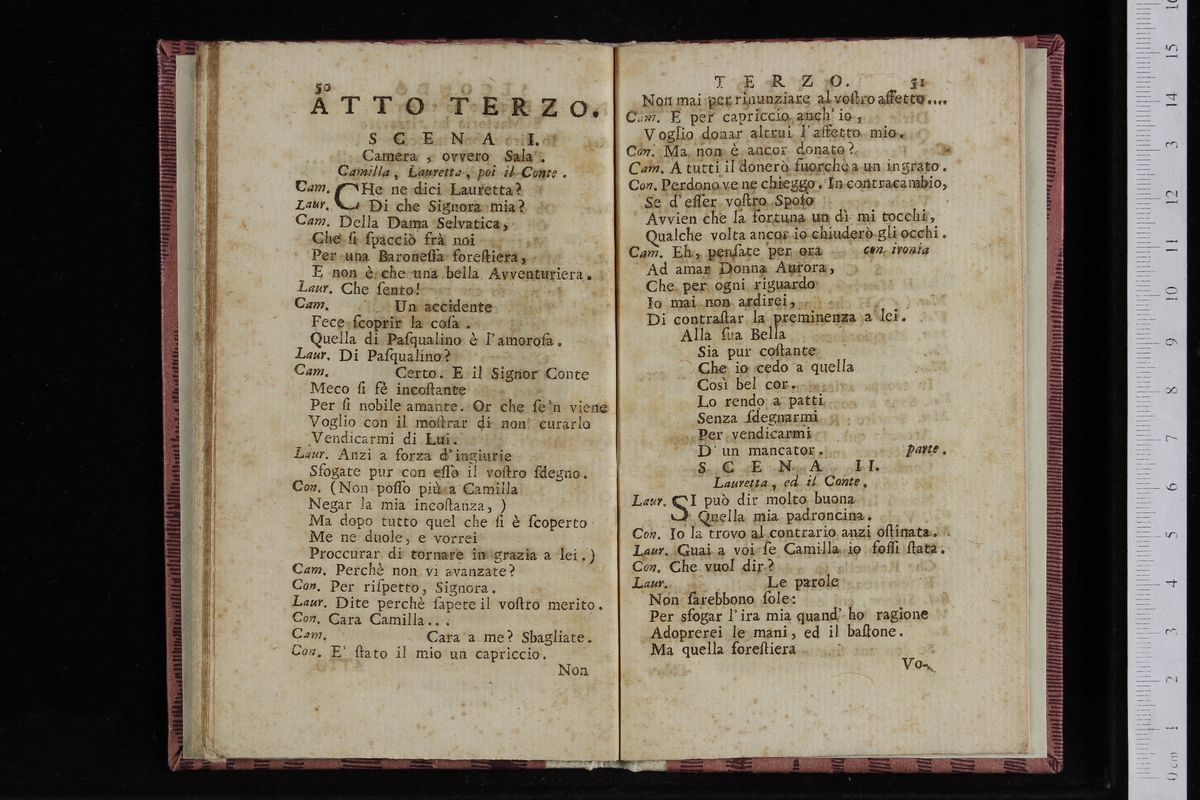 50
ATTO TERZO.
SCENA I.
Camera, ovvero Sala.
Camilla, Lauretta, poi il Conte.
Cam. CHe ne dici Lauretta?
Laur. Di che Signora mia?
Cam. Della Dama Selvatica,
Che ſi ſpacciò frà noi
Per una Baroneſſa foreſtiera,
E non è che una bella Avventuriera.
Laur. Che ſento!
Cam. Un accidente
Fece ſcoprir la coſa.
Quella di Paſqualino è l'amoroſa.
Laur. Di Paſqualino?
Cam. Certo. E il Signor Conte
Meco ſi fè incoſtante
Per ſi nobile amante. Or che ſe'n viene
Voglio con il moſtrar di non curarlo
Vendicarmi di Lui.
Laur. Anzi a forza d'ingiurie
Sfogate pur con eſſo il voſtro ſdegno.
Con. (Non poſſo più a Camilla
Negar la mia incoſtanza,)
Ma dopo tutto quel che ſi è ſcoperto
Me ne duole, e vorrei
Proccurar di tornare in grazia a lei.)
Cam. Perchè non vi avanzate?
Con. Per riſpetto, Signora.
Laur. Dite perchè ſapete il voſtro merito.
Con. Cara Camilla...
Cam. Cara a me? Sbagliate.
Con. E' ſtato il mio un capriccio.
Non
TERZO. 51
Non mai per rinunziare al voſtro affetto....
Cam. E per capriccio anch'io,
Voglio donar altrui l'affetto mio.
Con. Ma non è ancor donato?
Cam. A tutti il donerò fuorchè a un ingrato.
Con. Perdono ve ne chieggo. In contracambio,
Se d'eſſer voſtro Spoſo
Avvien che la fortuna un dì mi tocchi,
Qualche volta ancor io chiuderò gli occhi.
Cam. Eh, penſate per ora con ironia
Ad amar Donna Aurora,
Che per ogni riguardo
Io mai non ardirei,
Di contraſtar la preminenza a lei.
Alla ſua Bella
Sia pur coſtante
Che io cedo a quella
Così bel cor.
Lo rendo a patti
Senza ſdegnarmi
Per vendicarmi
D'un mancator. parte.
SCENA II.
Lauretta, ed il Conte.
Laur. SI può dir molto buona
Quella mia padroncina.
Con. Io la trovo al contrario anzi oſtinata.
Laur. Guai a voi ſe Camilla io foſſi ſtata.
Con. Che vuol dir?
Laur. Le parole
Non ſarebbono ſole:
Per sfogar l'ira mia quand' ho ragione
Adoprerei le mani, ed il baſtone.
Ma quella foreſtiera
Vo-